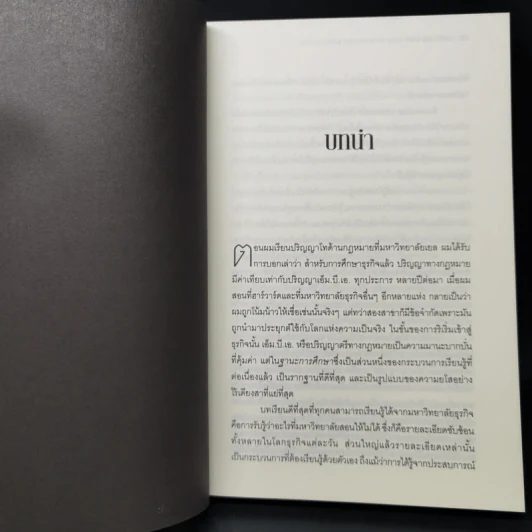 บทนำ
ตอนผมเรียนปริญญาโทด้านกฎหมายที่มหาวิทยาลัยเยล ผมได้รับ
การบอกเล่าว่า สำหรับการศึกษาธุรกิจแล้ว ปริญญาทางกฎหมาย
มีค่าเทียบเท่ากับปริญญาเอ็ม.บี.เอ. ทุกประการ หลายปีต่อมา เมื่อผม
สอนที่ฮาร์วาร์ดและที่มหาวิทยาลัยธุรกิจอื่นๆ อีกหลายแห่ง กลายเป็นว่า
ผมถูกโน้มน้าวให้เชื่อเช่นนั้นจริงๆ แต่ทว่าสองสาขาก็มีข้อจำกัดเพราะมัน
ถูกนำมาประยุกต์ใช้กับโลกแห่งความเป็นจริง ในขั้นของการริเริ่มเข้าสู่
ธุรกิจนั้น เอ็ม.บี.เอ. หรือปริญญาตรีทางกฎหมายเป็นความมานะบากบั่น
ที่คุ้มค่า แต่ในฐานะการศึกษาซึ่งเป็นส่วนหนึ่งของกระบวนการเรียนรู้ที่
ต่อเนื่องแล้ว เป็นรากฐานที่ดีที่สุด และเป็นรูปแบบของความยโสอย่าง
ไร้เดียงสาที่แย่ที่สุด
บทเรียนดีที่สุดที่ทุกคนสามารถเรียนรู้ได้จากมหาวิทยาลัยธุรกิจ
คือการรับรู้ว่าอะไรที่มหาวิทยาลัยสอนให้ไม่ได้ ซึ่งก็คือรายละเอียดซับซ้อน
ทั้งหลายในโลกธุรกิจแต่ละวัน ส่วนใหญ่แล้วรายละเอียดเหล่านั้น
เป็นกระบวนการที่ต้องเรียนรู้ด้วยตัวเอง ถึงแม้ว่าการได้รู้จากประสบการณ์